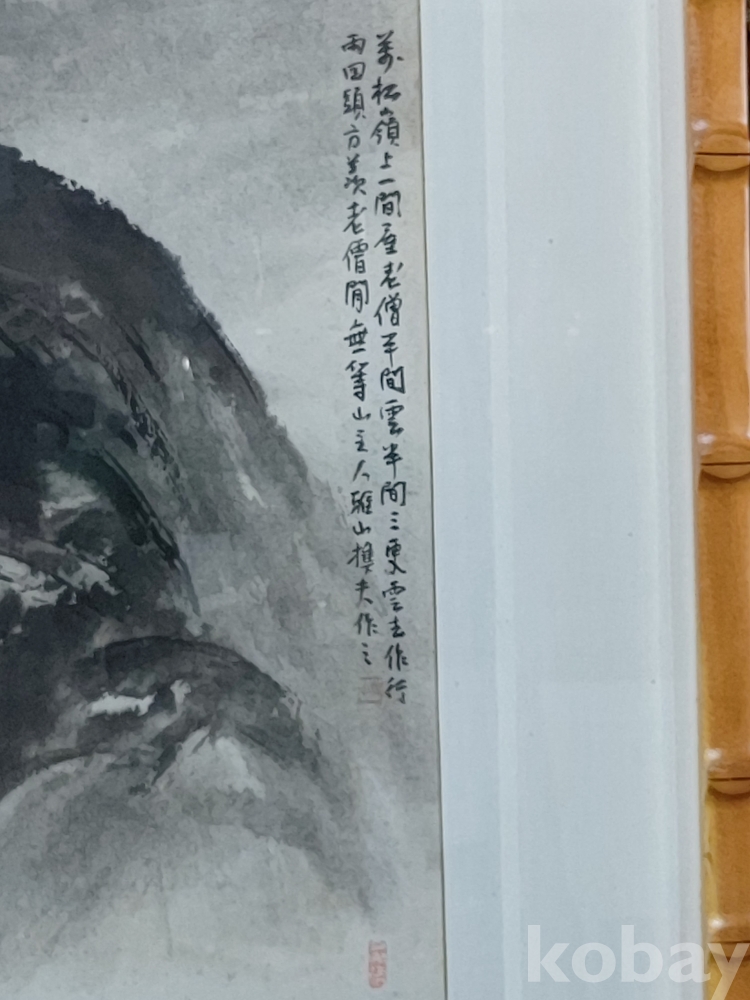 萬松嶺上一間屋老僧半間雲半間三更雲去作行
雨回頭方羨老僧閒無等山主人 山樵夫作之
kobay